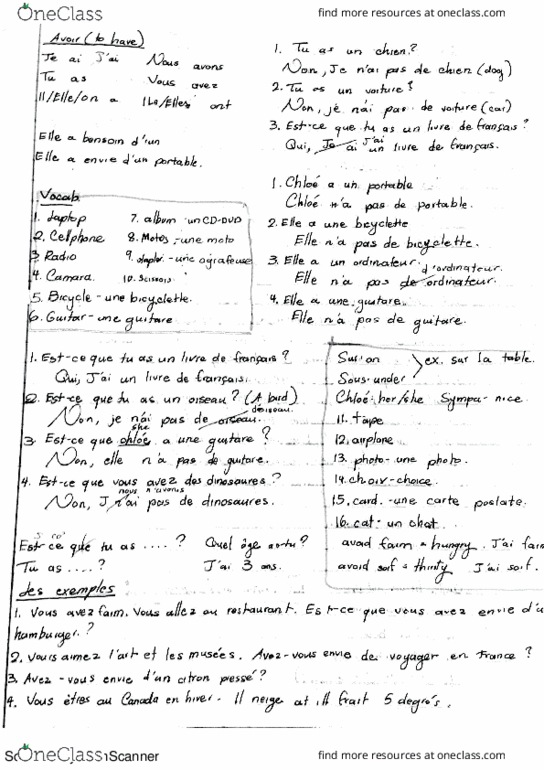 OneClass
find more resources at oneclass.com
Avoir (to have)
Je ai J'ai Nous avons
Tu as Vous avez
Il/Elle/on a Ils/Elles ont
Elle a bensoin d'un
Elle a envie d'un portable.
1. Tu as un chien?
Non, Je n'ai pas de chien (dog)
2. Tu as un voiture?
Non, je n'ai pas de voiture (car)
3. Est-ce que tu as un livre de français?
Qui, Je ai J'ai un livre de français.
Vocab
1. Laptop
2. Cellphone
3. Radio
4. Camara
5. Bicycle - une bicyclette.
6. Guitar - une guitare
7. album un CD-DVD
8. Motos - une moto
9. - une agrafeuse
10. Scissors
1. Chloé a un portable
Chloé n'a pas de portable.
2. Elle a une bicyclette
Elle n'a pas de bicyclette.
3. Elle a un ordinateur.
d'ordinateur.
Elle n'a pas de ordinateur.
4. Elle a une guitare.
Elle n'a pas de guitare.
1. Est-ce que tu as un livre de français?
Qui, J'ai un livre de français.
2. Est-ce que tu as un oiseau? (A bird)
d'oiseau.
Non, je n'ai pas de oiseau.
she
3. Est-ce que chloé a une guitare?
Non, elle n'a pas de guitare.
4. Est-ce que vous avez des dinosaures?
nous n'avons
Non, J n'ai pas de dinosaures.
Sur: on ex. sur la table.
Sous: under
Chloé: her/she Sympa - nice
11. Tape
12. airplone
13. photo - une photo.
14. choix - choice.
15. card. - une carte postale.
16. cat: un chat.
avoid faim = hungry. J'ai faim
avoid soif = thirsty J'ai soif.
Est-ce que tu as ....? Quel âge as-tu?
Tu as ....? J'ai 3 ans.
des exemples
1. Vous avez faim. Vous allez au restaurant. Est-ce que vous avez envie d'u
hamburger.?
2. Vours aimez l'art et les musées. Avez-vous envie de voyager en France?
3. Avez-vous envie d'un citron pressé?
4. Vous êtres au Canada en hiver - Il neige at il frait 5 degrés.
OneClass
Scanner
find more resources at oneclass.com